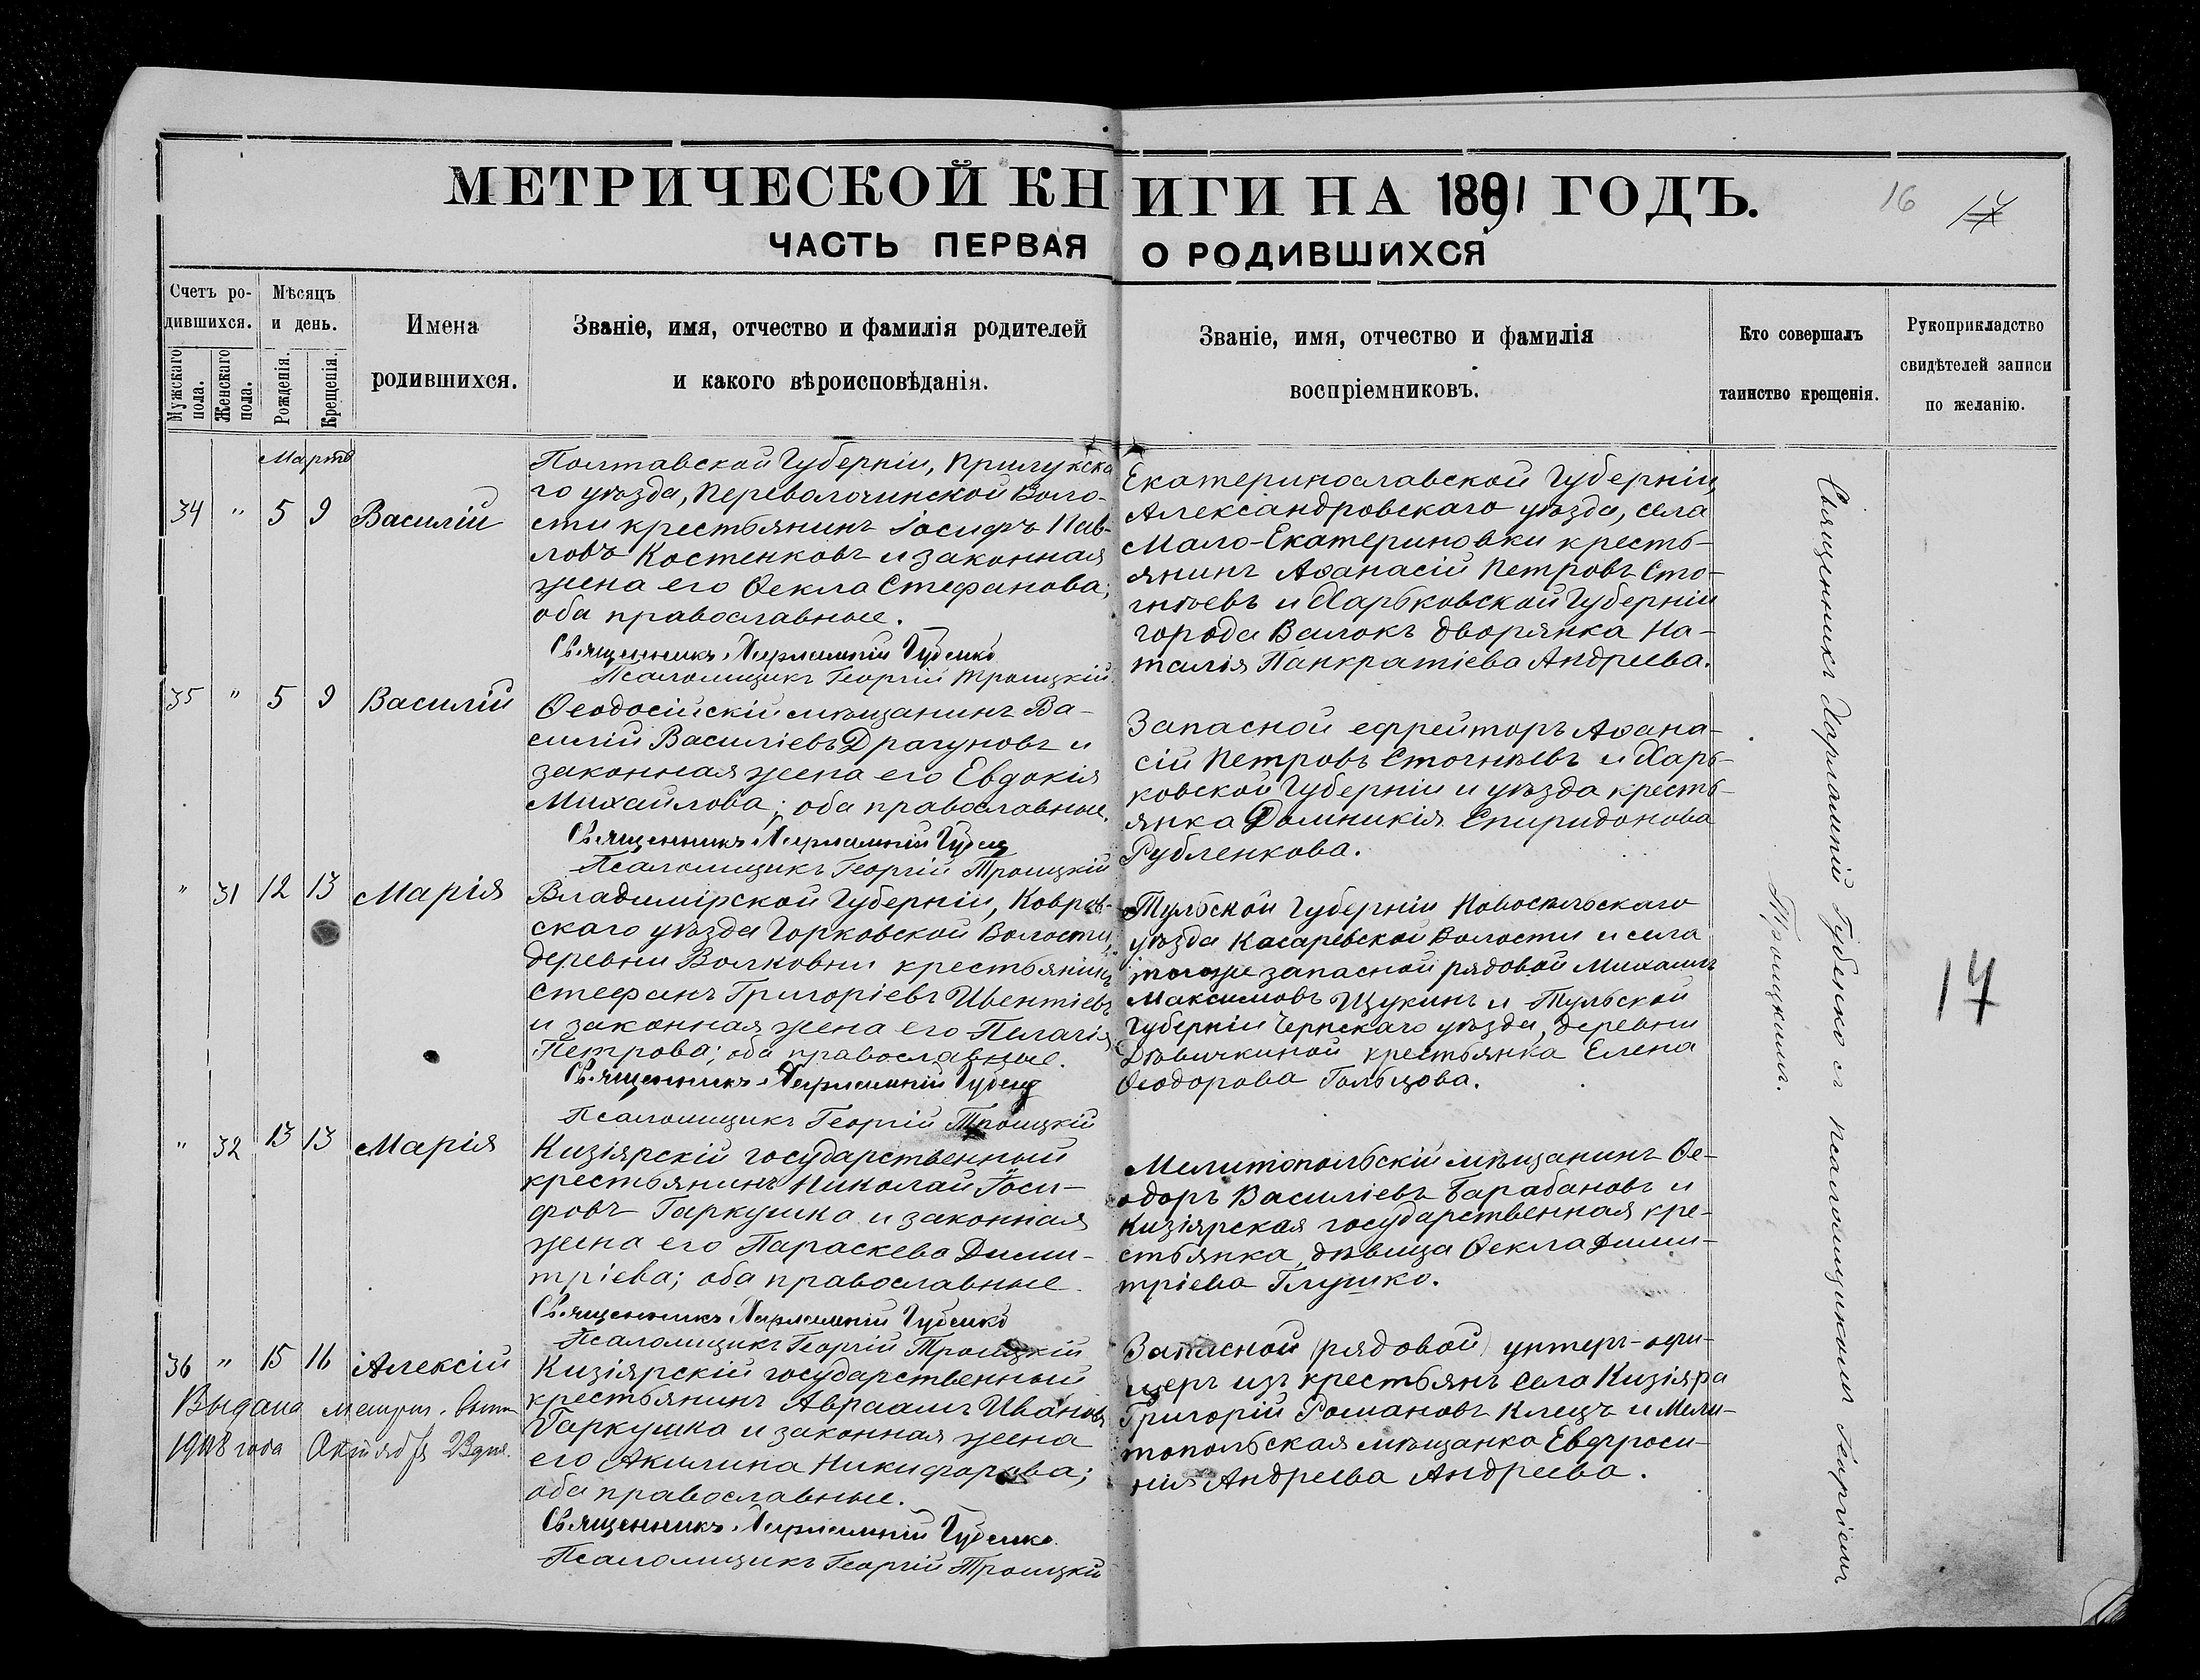 МЕТРИЧЕСКОЙ КНИГИ НА 1891 ГОДЪ.
16
17
ЧАСТЬ ПЕРВАЯ О РОДИВШИХСЯ
Счетъ ро-
дившихся.
Мужскаго пола.
Женскаго пола.
Мѣсяцъ
и день.
Рожденія.
Крещенія.
Имена
родившихся.
Званіе, имя, отчество и фамилія родителей
и какого вѣроисповѣданія.
Званіе, имя, отчество и фамилія
воспріемниковъ.
Кто совершалъ
таинство крещенія.
Рукоприкладство
свидѣтелей записи
по желанію.
Мартъ
34 " 5 9 Василій
Полтавской Губерніи, Прилукска
го уѣзда, Переволочинской Воло-
сти крестьянинъ Іосифъ Пав-
ловъ Костенковъ и законная
жена его Ѳекла Стефанова;
оба православные.
Священникъ Харлампій Губенко
Псаломщикъ Георгій Троицкій
Екатеринославской Губерніи,
Александровскаго уѣзда, села
Мало-Екатериновки кресть-
янинъ Аѳанасій Петровъ Сто-
гнѣевъ и Харьковской Губерніи
города Валокъ дворянка На-
талія Панкратіева Андреева.
35 " 5 9 Василій
Ѳеодосійскій мѣщанинъ Ва-
силій Василіевъ Драгуновъ и
законная жена его Евдокія
Михайлова; оба православные.
Священникъ Харлампій Губенко
Псаломщикъ Георгій Троицкій
Запасной ефрейторъ Аѳана-
сій Петровъ Стогнѣевъ и Харь-
ковской Губерніи и уѣзда кресть-
янка Домникія Спиридонова
Рубленкова.
" 31 12 13 Марія
Владимірской Губерніи, Ковров-
скаго уѣзда Горковской Волости,
деревни Волковни крестьянинъ
Стефанъ Григоріевъ Ивентіевъ
и законная жена его Пелагія
Петрова; оба православные.
Священникъ Харлампій Губенко
Псаломщикъ Георгій Троицкій
Тульской Губерніи Новосильскаго
уѣзда Касаревской Волости и села
тогоже запасной рядовой Михаилъ
Максимовъ Щукинъ и Тульской
Губерніи Чернскаго уѣзда, деревни
Дѣвичкиной крестьянка Елена
Ѳеодорова Гольцова.
" 32 13 13 Марія
Кизіярскій государственный
крестьянинъ Николай Іоси-
фовъ Гаркушка и законная
жена его Параскева Дими-
тріева; оба православные.
Священникъ Харлампій Губенко
Псаломщикъ Георгій Троицкій
Мелитопольскій мѣщанинъ Ѳе-
одоръ Василіевъ Барабановъ и
Кизіярская государственная кре-
стьянка, дѣвица Ѳекла Дими-
тріева Глушко.
36 " 15 16 Алексій
Выдана метрич.
года Октября 23 дня.
Кизіярскій государственный
крестьянинъ Авраамъ Ивановъ
Гаркушка и законная жена
его Акилина Никифорова;
оба православные.
Священникъ Харлампій Губенко
Псаломщикъ Георгій Троицкій
Запасной (рядовой) унтеръ-офи-
церъ изъ крестьянъ села Кизіяра
Григорій Романовъ Клецъ и Мели-
топольская мѣщанка Евфроси-
нія Андреева Андреева.
Священникъ Харлампій Губенко съ псаломщикомъ Георгіемъ
Троицкимъ.
17